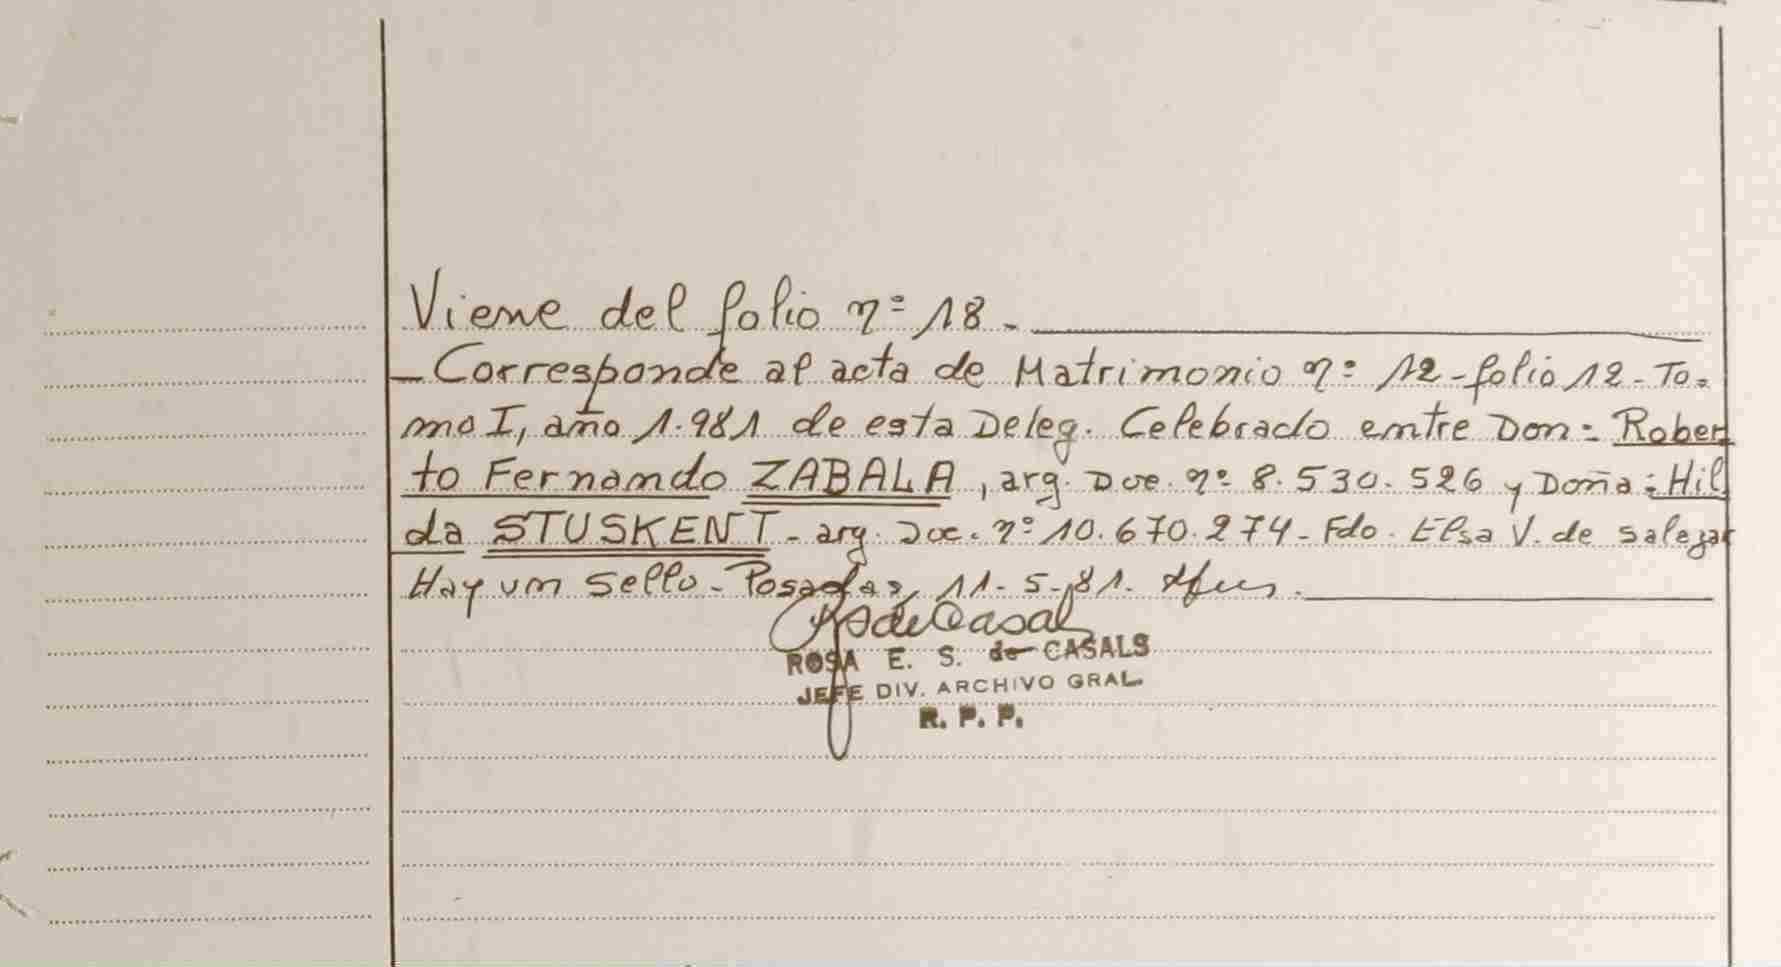 Viene del folio nº 18.-
- Corresponde al acta de Matrimonio nº 12 - folio 12 - To=
mo I, año 1.981 de esta Deleg. Celebrado entre Don: Rober
to Fernando ZABALA, arg. Doc. nº 8.530.526 y Doña: Hil
da STUSKENT - arg. Doc. nº 10.670.274 - Fdo. Elsa V. de Salazar
Hay un Sello - Posadas, 11-5-81.
ROSA E. S. de CASALS
JEFE DIV. ARCHIVO GRAL.
R. P. P.